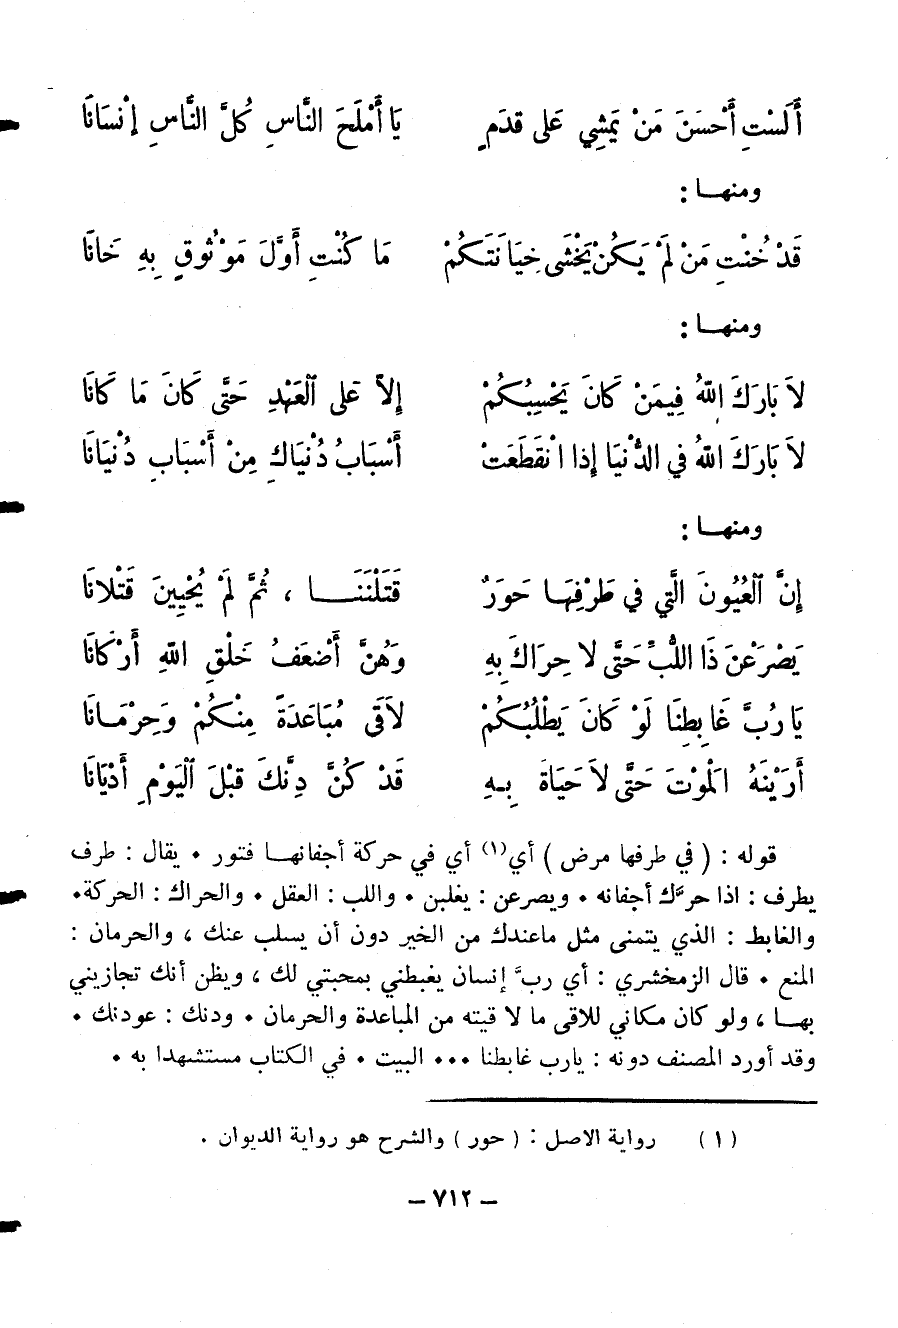 أَلَسْتِ أَحْسَنَ مَنْ يَمْشِي عَلى قدَمٍ يَا أَمْلَحَ النَّاسِ كُلَّ النَّاسِ إنْسَانَا
ومنهـا :
قَدْ خُنْتِ مَنْ لَمْ يَكُنْ يَخْشَى خِيَانَتَكُمْ مَا كُنْتِ أَوَّلَ مَوْثُوقٍ بِهِ خَانَا
ومنهـا :
لاَ بَارَكَ اللهُ فِيمَنْ كَانَ يَحْسِبُكُمْ إلاَّ عَلى ٱلعَهْدِ حَتَّى كَانَ مَا كَانَا
لاَ بَارَكَ اللهُ في الدُّنْيَا إذا انْقَطَعَتْ أَسْبَابُ دُنْيَاكِ مِنْ أَسْبَابِ دُنْيَانَا
ومنهـا :
إنَّ ٱلعُيُونَ الَّتِي في طَرْفِهَـا حَوَرٌ قَتَلْنَنَـــا ، ثُمَّ لَمْ يُحْيِينَ قَتْلانَا
يَصْرَعْنَ ذَا اللبِّ حَتَّى لا حِرَاكَ بِهِ وَهُنَّ أَضْعَفُ خَلْقِ اللهِ أَرْكَانَا
يَا رُبَّ غَابِطِنَا لَوْ كَانَ يَطْلُبُكُمْ لاَقَى مُبَاعَدَةً مِنْكُمْ وَحِرْمَـانَا
أَرَيْنَهُ المَوْتَ حَتَّى لاَ حَيَاةَ بِـهِ قَدْ كُنَّ دِنَّكَ قبْلَ ٱليَوْمِ أَدْيَانَا
قوله : ( في طرفها مرض ) أي(١) أي في حركة أجفانهـا فتور • يقال : طرف
يطرف : اذا حرَّك أجفانه • ويصرعن : يغلبن • واللب : العقل • والحراك : الحركة •
والغابط : الذي يتمنى مثل ماعندك من الخير دون أن يسلب عنك ، والحرمان :
المنع • قال الزمخشري : أي ربَّ إنسان يغبطني بمحبتي لك ، ويظن أنك تجازيني
بهـا ، ولو كان مكاني للاقى ما لا قيته من المباعدة والحرمان • ودنك : عودنك •
وقد أورد المصنف دونه : يارب غابطنا ••• البيت • في الكتاب مستشهدا به •
(١) رواية الاصل : ( حور ) والشرح هو رواية الديوان .
– ٧١٢ –